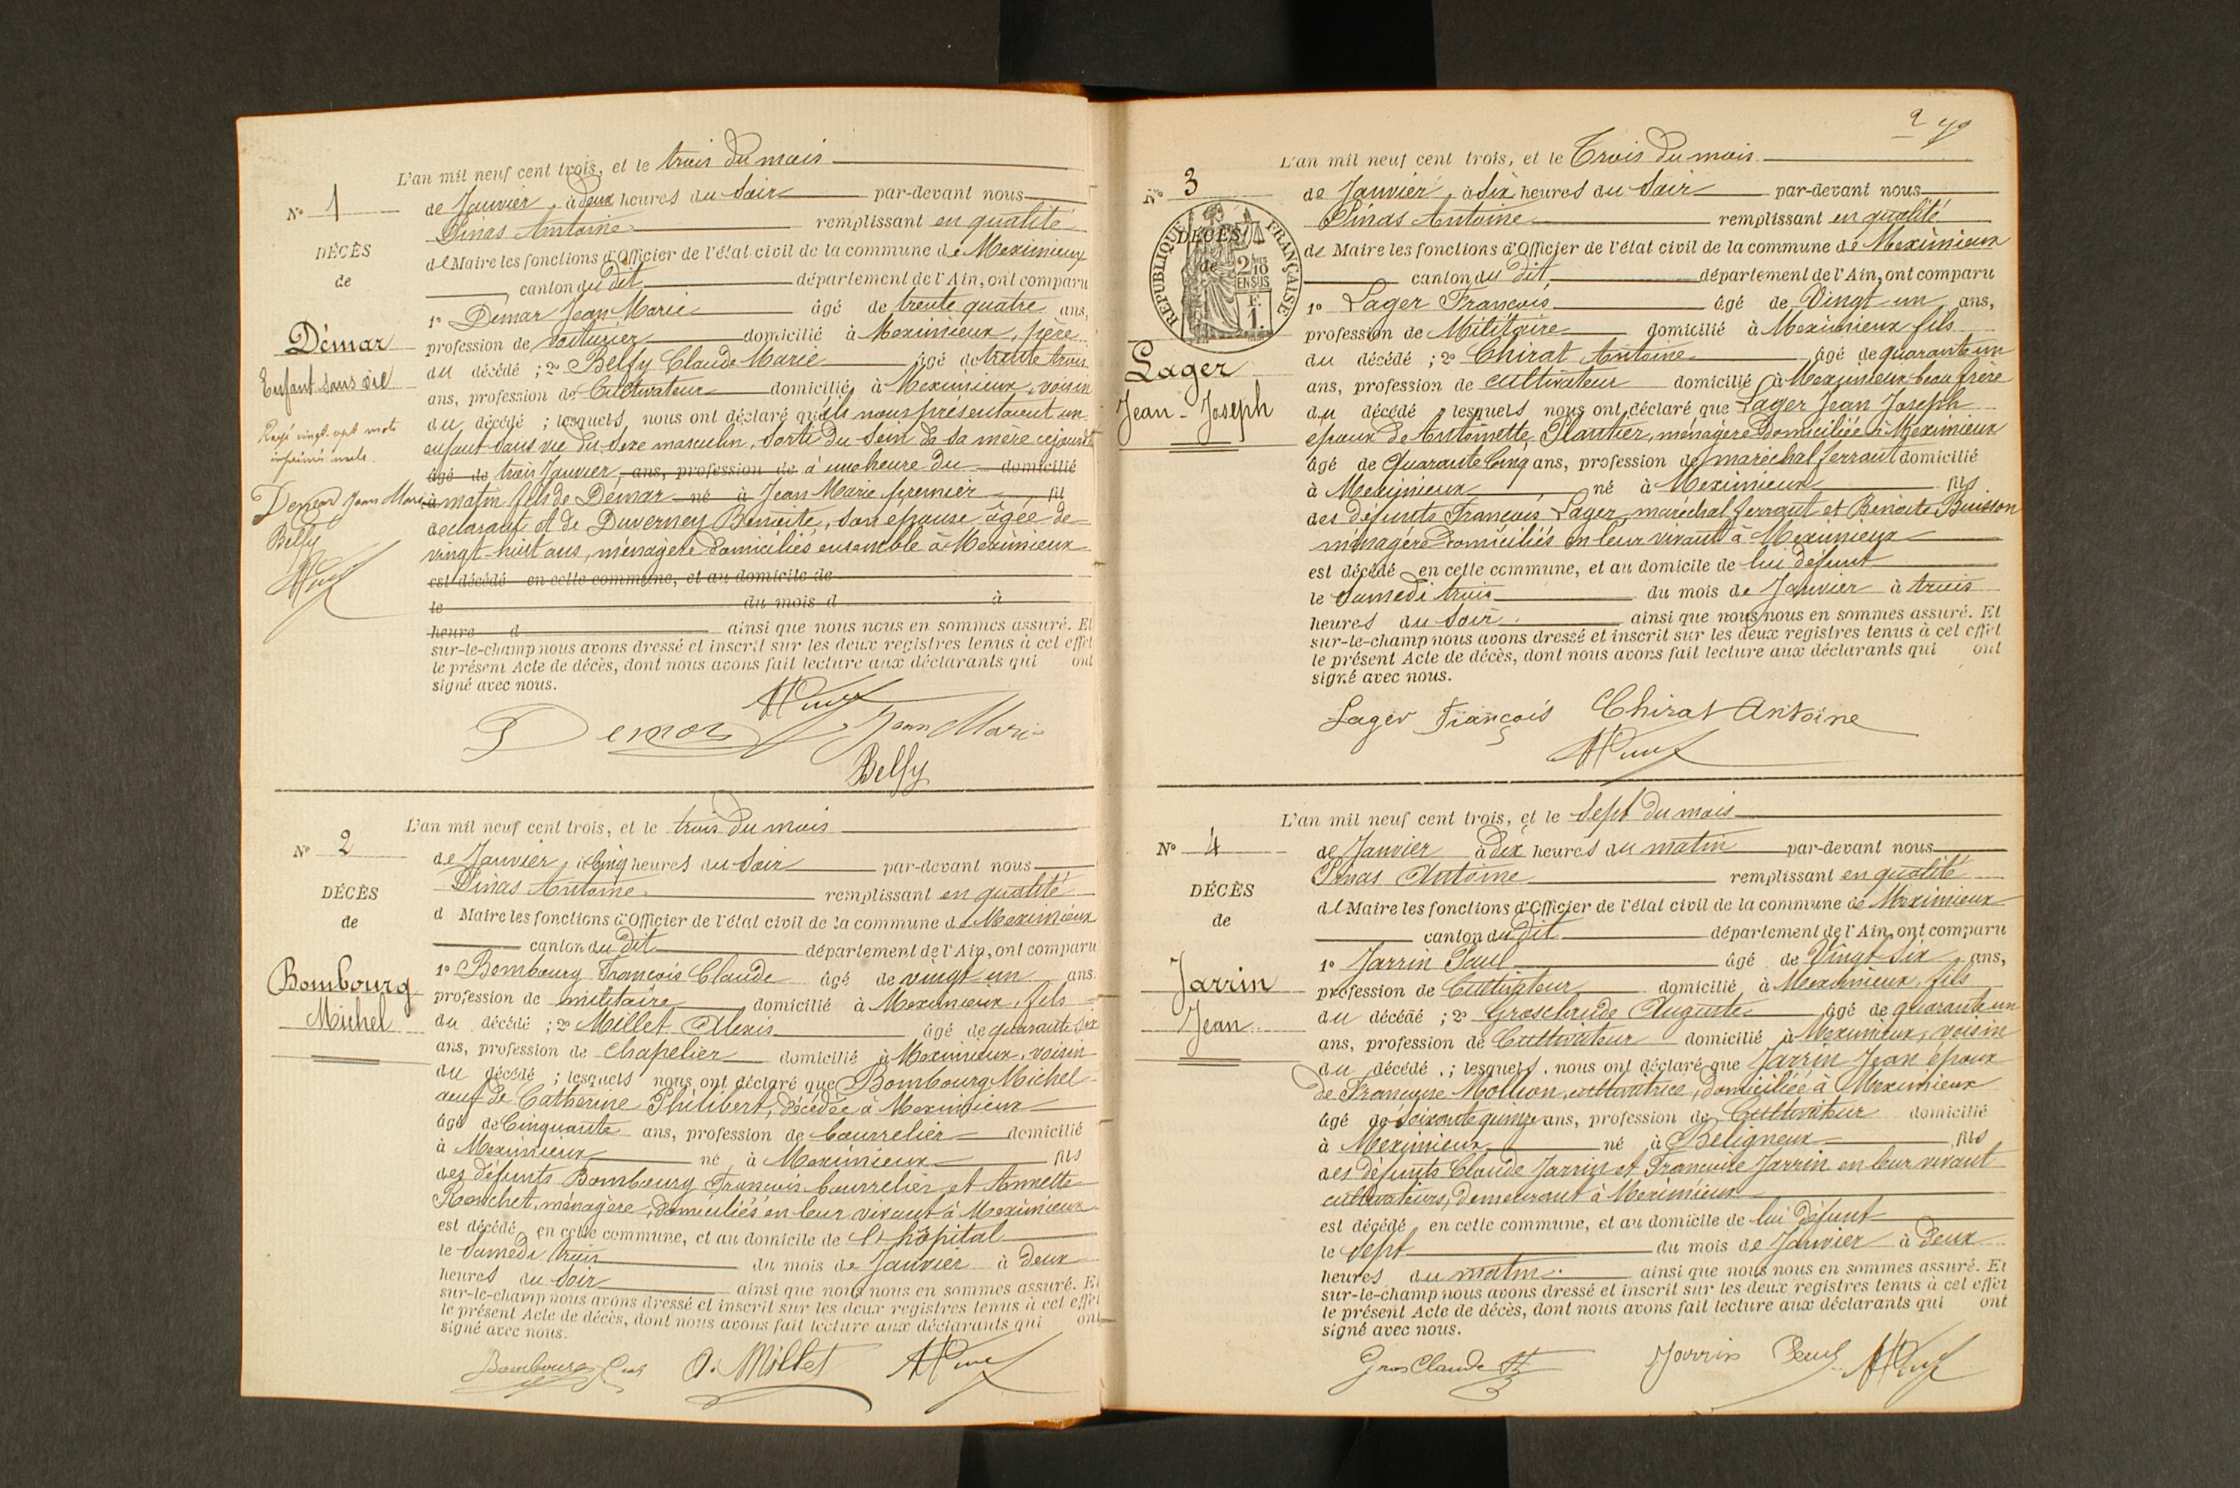 L'an mil neuf cent trois, et le trois du mois
N° 1
de Janvier, à deux heures du soir par-devant nous
Pinas Antoine remplissant en qualité
DÉCÈS
de Maire les fonctions d'Officier de l'état civil de la commune de Meximieux
de
canton du dit département de l'Ain, ont comparu
1° Démar Jean Marie âgé de trente quatre ans,
Démar
profession de voiturier domicilié à Meximieux, père
du décédé ; 2° Belfy Claude Marie âgé de trente trois
Enfant sans vie
ans, profession de Cultivateur domicilié à Meximieux, voisin
du décédé ; lesquels nous ont déclaré qu'ils nous présentaient un
Rayé vingt-sept mots
enfant sans vie du sexe masculin, sorti du sein de sa mère cejourd'hui
imprimés nuls.
âgé de trois Janvier, ans, profession de à une heure du domicilié
Demar Jean Marie
à matin fils de Démar né à Jean Marie premier fil
déclarant et de Duverney Benoite, son épouse âgée de
Belfy
vingt-huit ans, ménagère domiciliés ensemble à Meximieux
est décédé en cette commune, et au domicile de
le du mois d à
heure d ainsi que nous nous en sommes assuré. Et
sur-le-champ nous avons dressé et inscrit sur les deux registres tenus à cet effet
le présent Acte de décès, dont nous avons fait lecture aux déclarants qui ont
signé avec nous.
Demar Jean Marie
Belfy
L'an mil neuf cent trois, et le trois du mois
N° 2
de Janvier, à cinq heures du soir par-devant nous
Pinas Antoine remplissant en qualité
DÉCÈS
d Maire les fonctions d'Officier de l'état civil de la commune de Meximieux
de
canton du dit département de l'Ain, ont comparu
1° Bombourg François Claude âgé de vingt un ans
Bombourg
profession de militaire domicilié à Meximieux, fils
Michel
du décédé ; 2° Millet Alexis âgé de quarante six
ans, profession de chapelier domicilié à Meximieux, voisin
du décédé ; lesquels nous ont déclaré que Bombourg Michel
veuf de Catherine Philibert, décédée à Meximieux
âgé de Cinquante ans, profession de bourrelier domicilié
à Meximieux né à Meximieux fils
des défunts Bombourg François bourrelier et Annette
Ronchet, ménagère, domiciliés en leur vivant à Meximieux
est décédé en cette commune, et au domicile de l'hôpital
le samedi trois du mois de Janvier à deux
heures du soir ainsi que nous nous en sommes assuré. Et
sur-le-champ nous avons dressé et inscrit sur les deux registres tenus à cet effet
le présent Acte de décès, dont nous avons fait lecture aux déclarants qui ont
signé avec nous.
Bombourg A. Millet
2
L'an mil neuf cent trois, et le Trois du mois
N° 3
de Janvier, à six heures du soir par-devant nous
Pinas Antoine remplissant en qualité
DÉCÈS
de
RÉPUBLIQUE FRANÇAISE
2/10 EN SUS
F. 1.
de Maire les fonctions d'Officier de l'état civil de la commune de Meximieux
canton du dit département de l'Ain, ont comparu
1° Lager François âgé de Vingt-un ans,
profession de Militaire domicilié à Meximieux fils
Lager
du décédé ; 2° Chirat Antoine âgé de quarante un
ans, profession de cultivateur domicilié à Meximieux beau frère
Jean-Joseph
du décédé ; lesquels nous ont déclaré que Lager Jean Joseph
époux de Antoinette Plantier, ménagère domiciliée à Meximieux
âgé de Quarante Cinq ans, profession de maréchal ferrant domicilié
à Meximieux né à Meximieux fils
des défunts François Lager, maréchal ferrant et Benoite Buisson
ménagère domiciliés en leur vivant à Meximieux
est décédé en cette commune, et au domicile de lui défunt
le samedi trois du mois de Janvier à trois
heures du soir ainsi que nous nous en sommes assuré. Et
sur-le-champ nous avons dressé et inscrit sur les deux registres tenus à cet effet
le présent Acte de décès, dont nous avons fait lecture aux déclarants qui ont
signé avec nous.
Lager François Chirat Antoine
L'an mil neuf cent trois, et le Sept du mois
N° 4
de Janvier à dix heures du matin par-devant nous
Pinas Antoine remplissant en qualité
DÉCÈS
de Maire les fonctions d'Officier de l'état civil de la commune de Meximieux
de
canton du dit département de l'Ain, ont comparu
1° Jarrin Paul âgé de Vingt Six ans,
Jarrin
profession de Cultivateur domicilié à Meximieux, fils
Jean
du décédé ; 2° Grosclaude Auguste âgé de quarante un
ans, profession de Cultivateur domicilié à Meximieux, voisin
du décédé ; lesquels nous ont déclaré que Jarrin Jean époux
de Françoise Mollion, cultivatrice, domiciliée à Meximieux
âgé de soixante quinze ans, profession de Cultivateur domicilié
à Meximieux né à Béligneux fils
des défunts Claude Jarrin et Françoise Jarrin en leur vivant
cultivateurs, demeurant à Meximieux
est décédé en cette commune, et au domicile de lui défunt
le sept du mois de Janvier à deux
heures du matin. ainsi que nous nous en sommes assuré. Et
sur-le-champ nous avons dressé et inscrit sur les deux registres tenus à cet effet
le présent Acte de décès, dont nous avons fait lecture aux déclarants qui ont
signé avec nous.
Gros Claude Jarrin Paul